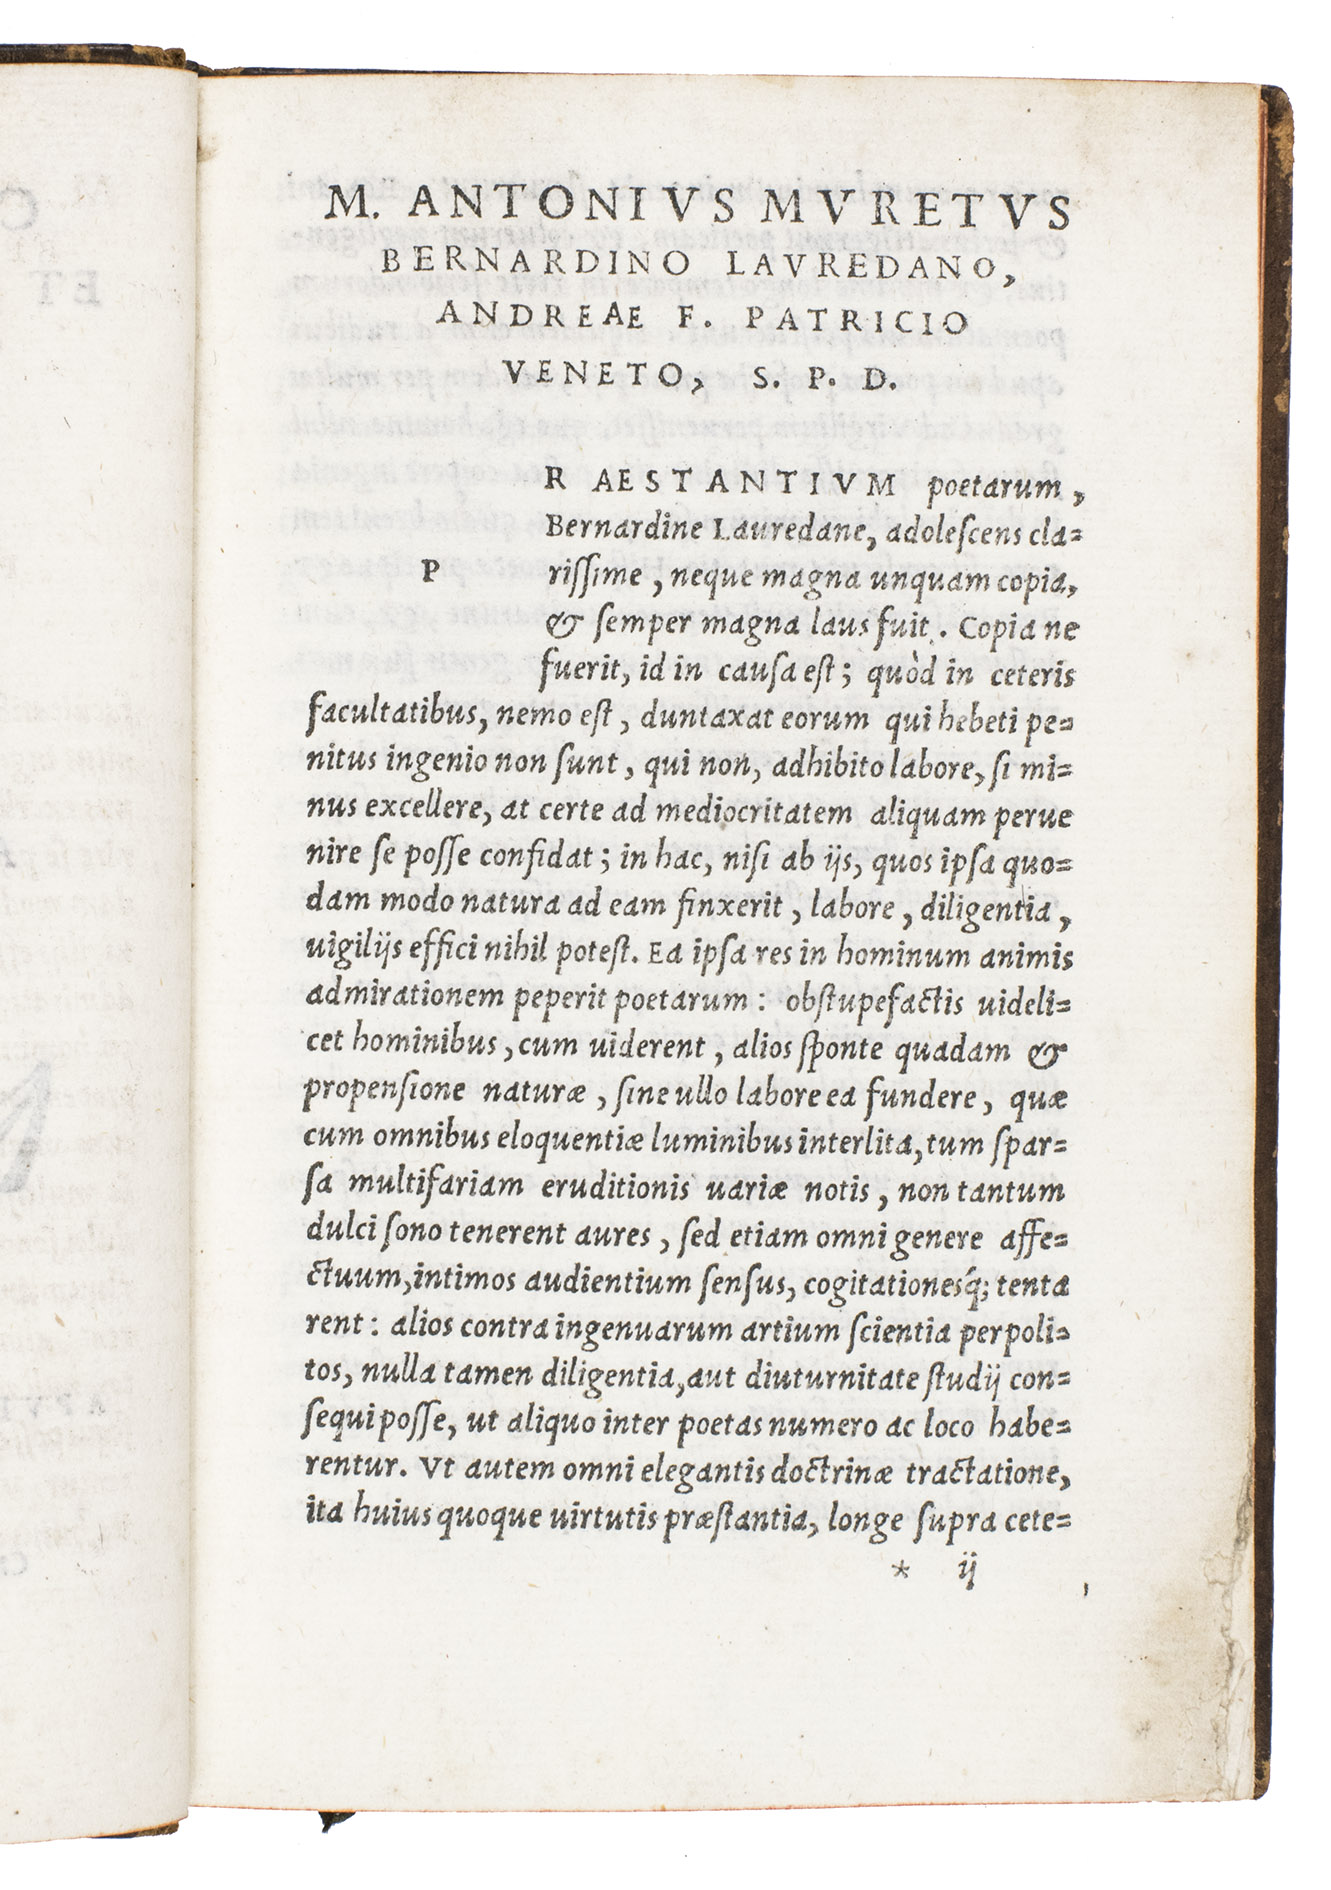 M. ANTONIVS MVRETVS
BERNARDINO LAVREDANO,
ANDREAE F. PATRICIO
VENETO, S. P. D.
P
R AESTANTIVM poetarum,
Bernardine Lauredane, adolescens cla=
rissime, neque magna unquam copia,
& semper magna laus fuit. Copia ne
fuerit, id in causa est; quòd in ceteris
facultatibus, nemo est, duntaxat eorum qui hebeti pe=
nitus ingenio non sunt, qui non, adhibito labore, si mi=
nus excellere, at certe ad mediocritatem aliquam perue
nire se posse confidat; in hac, nisi ab ijs, quos ipsa quo=
dam modo natura ad eam finxerit, labore, diligentia,
uigilijs effici nihil potest. Ea ipsa res in hominum animis
admirationem peperit poetarum: obstupefactis uideli=
cet hominibus, cum uiderent, alios sponte quadam &
propensione naturæ, sine ullo labore ea fundere, quæ
cum omnibus eloquentiæ luminibus interlita, tum spar=
sa multifariam eruditionis uariæ notis, non tantum
dulci sono tenerent aures, sed etiam omni genere affe=
ctuum, intimos audientium sensus, cogitationesq́; tenta
rent: alios contra ingenuarum artium scientia perpoli=
tos, nulla tamen diligentia, aut diuturnitate studij con=
sequi posse, ut aliquo inter poetas numero ac loco habe=
rentur. Vt autem omni elegantis doctrinæ tractatione,
ita huius quoque uirtutis præstantia, longe supra cete=
* ij